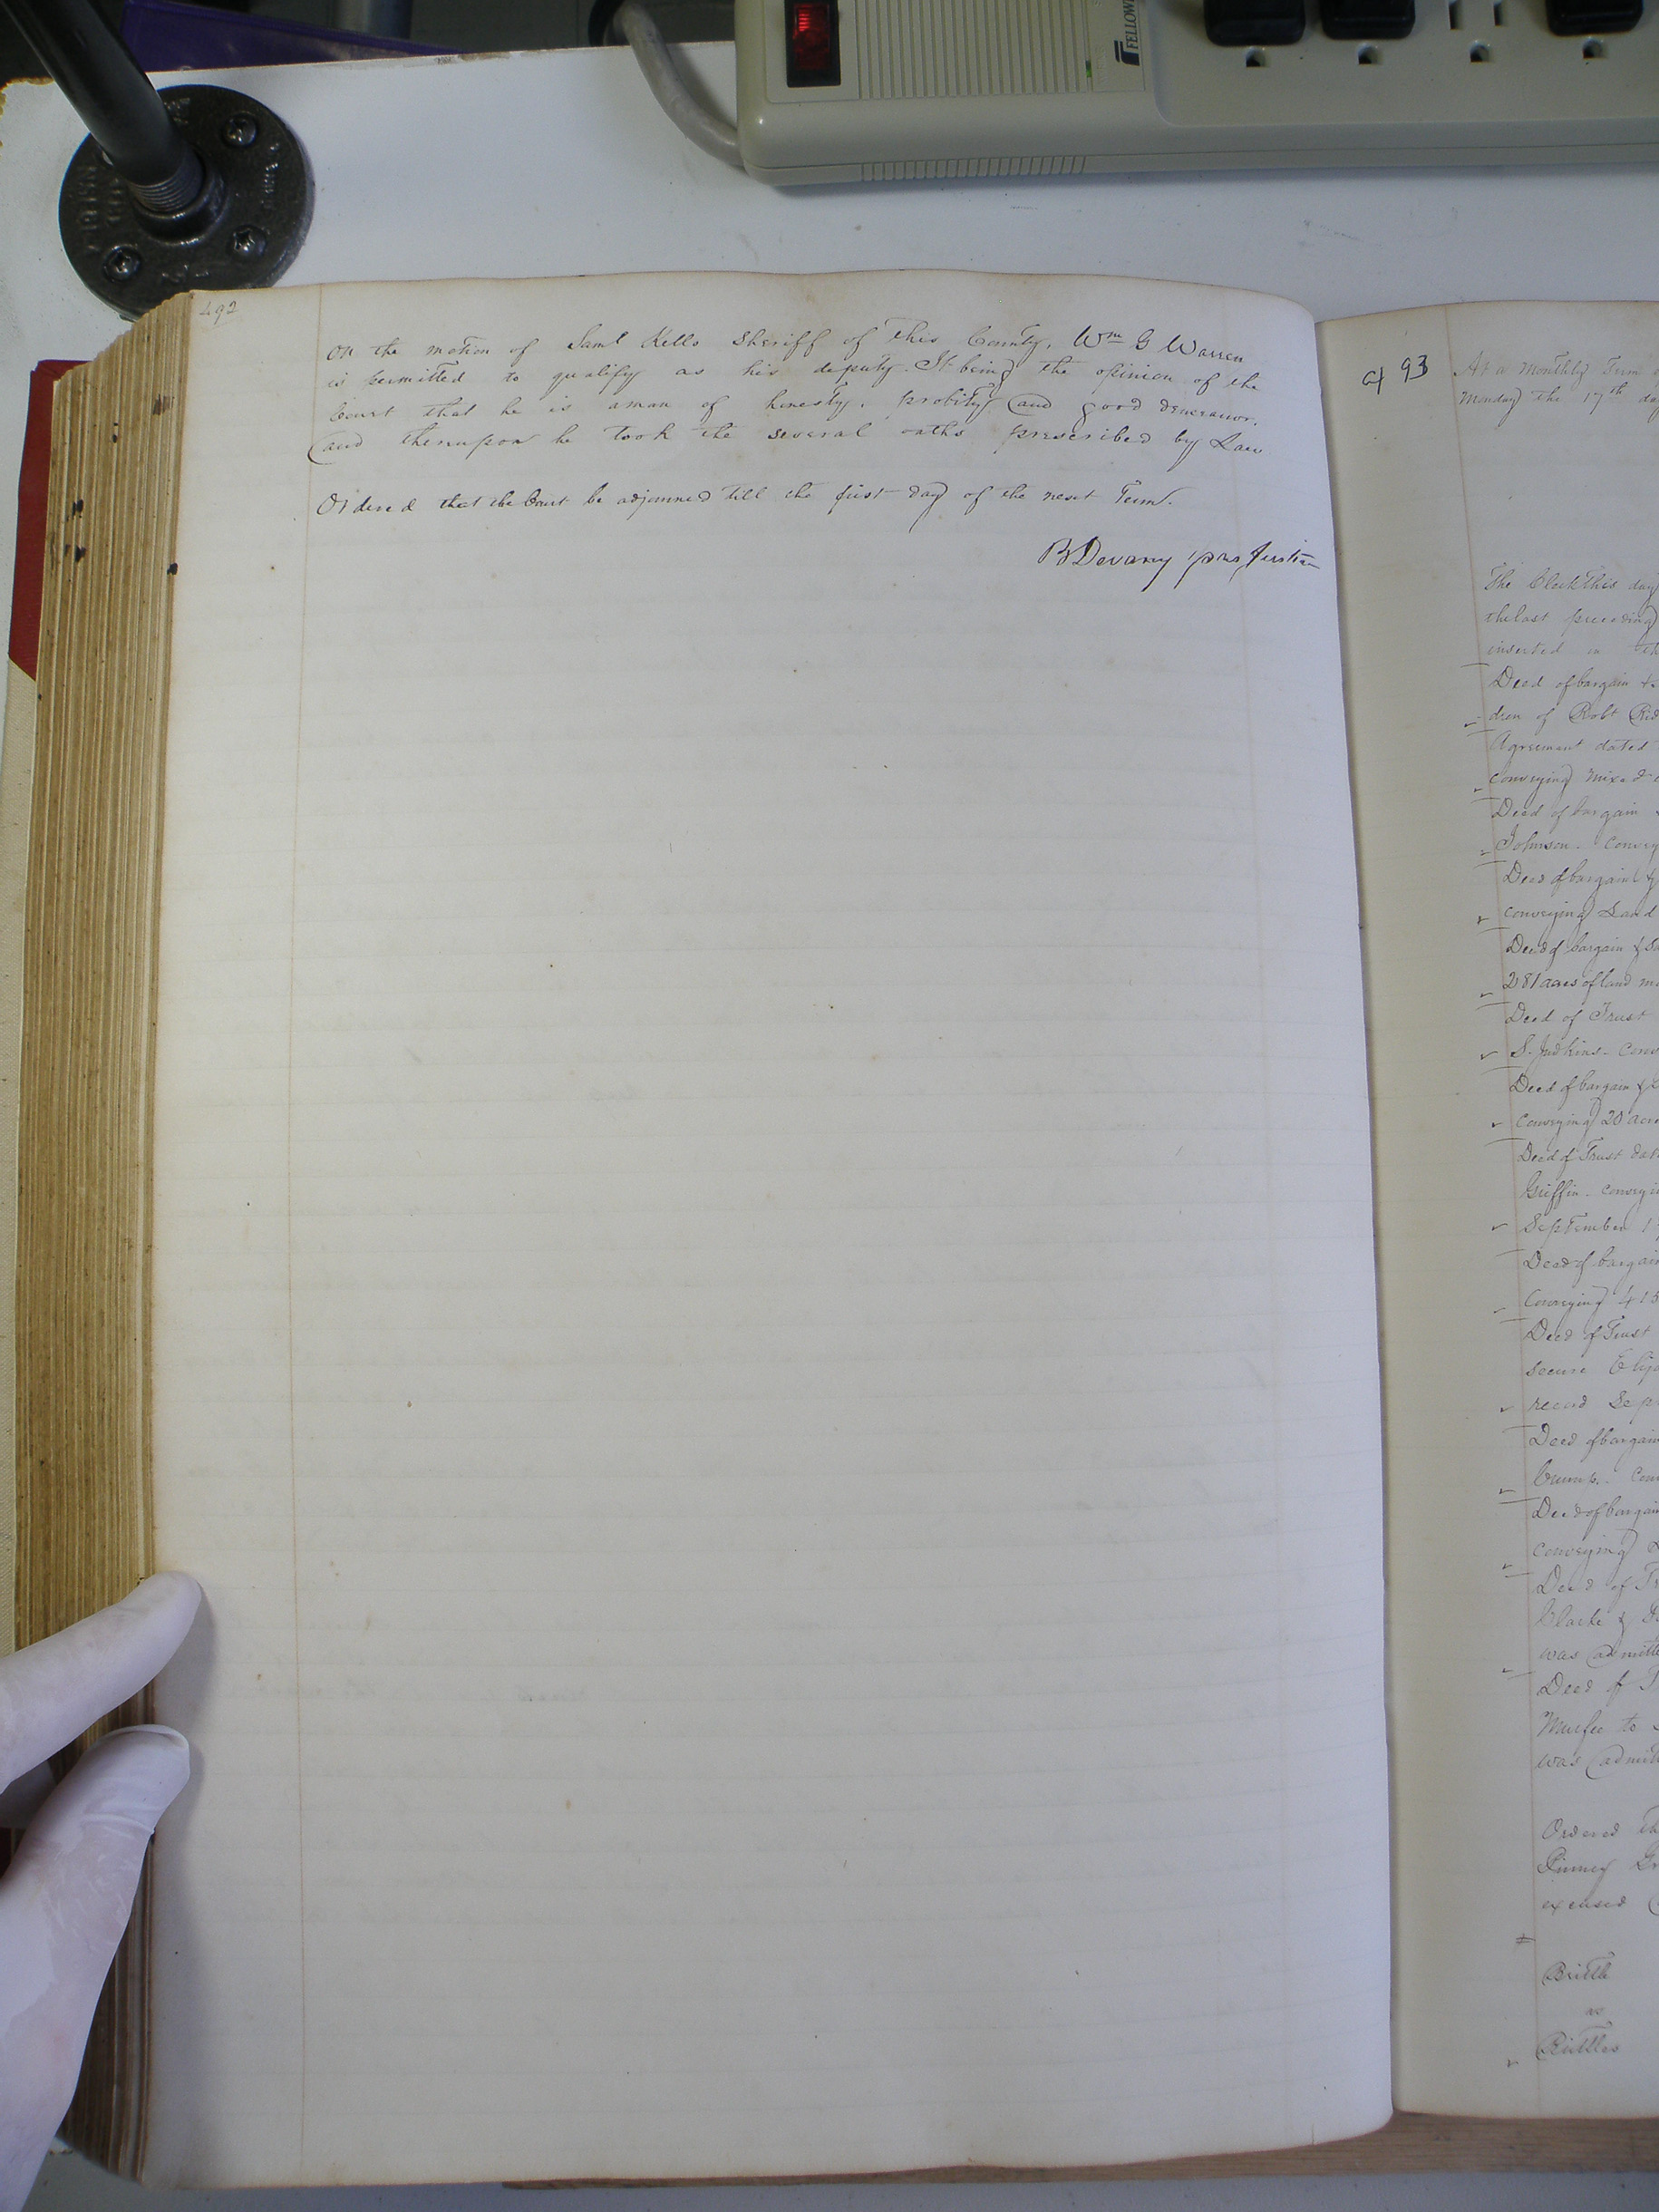 FELLOW
492
On the motion of Saml Kello Sheriff of this County, Wm G Warren
is permitted to qualify as his deputy. It being the opinion of the
Court that he is a man of honesty, probity and good demeanor.
and thereupon he took the several oaths prescribed by Law
Ordered that the Court be adjourned till the first day of the next Term.
B Devany
493
At a monthly Term
Monday the 17th day
The Clerk this day
the last preceding
inserted in
Deed of bargain &
dren of Robt Rid
Agreement dated
Conveying mixed
Deed of bargain
Johnson. Convey
Deed of bargain &
conveying Land
Deed of bargain & Sa
281 acres of land mo
Deed of Trust
S. Judkins - Conv
Deed of bargain &
Conveying 20 acre
Deed of Trust dat
Griffin - conveyi
September 1
Deed of bargain
Conveying 415
Deed of Trust
secure Eliza
record Sep
Deed of bargain
Crump. Con
Deed of bargain
conveying
Deed of Tr
Clarke &
was admitte
Deed of T
Murfee to
was admit
Ordered th
excused
Britt
vs